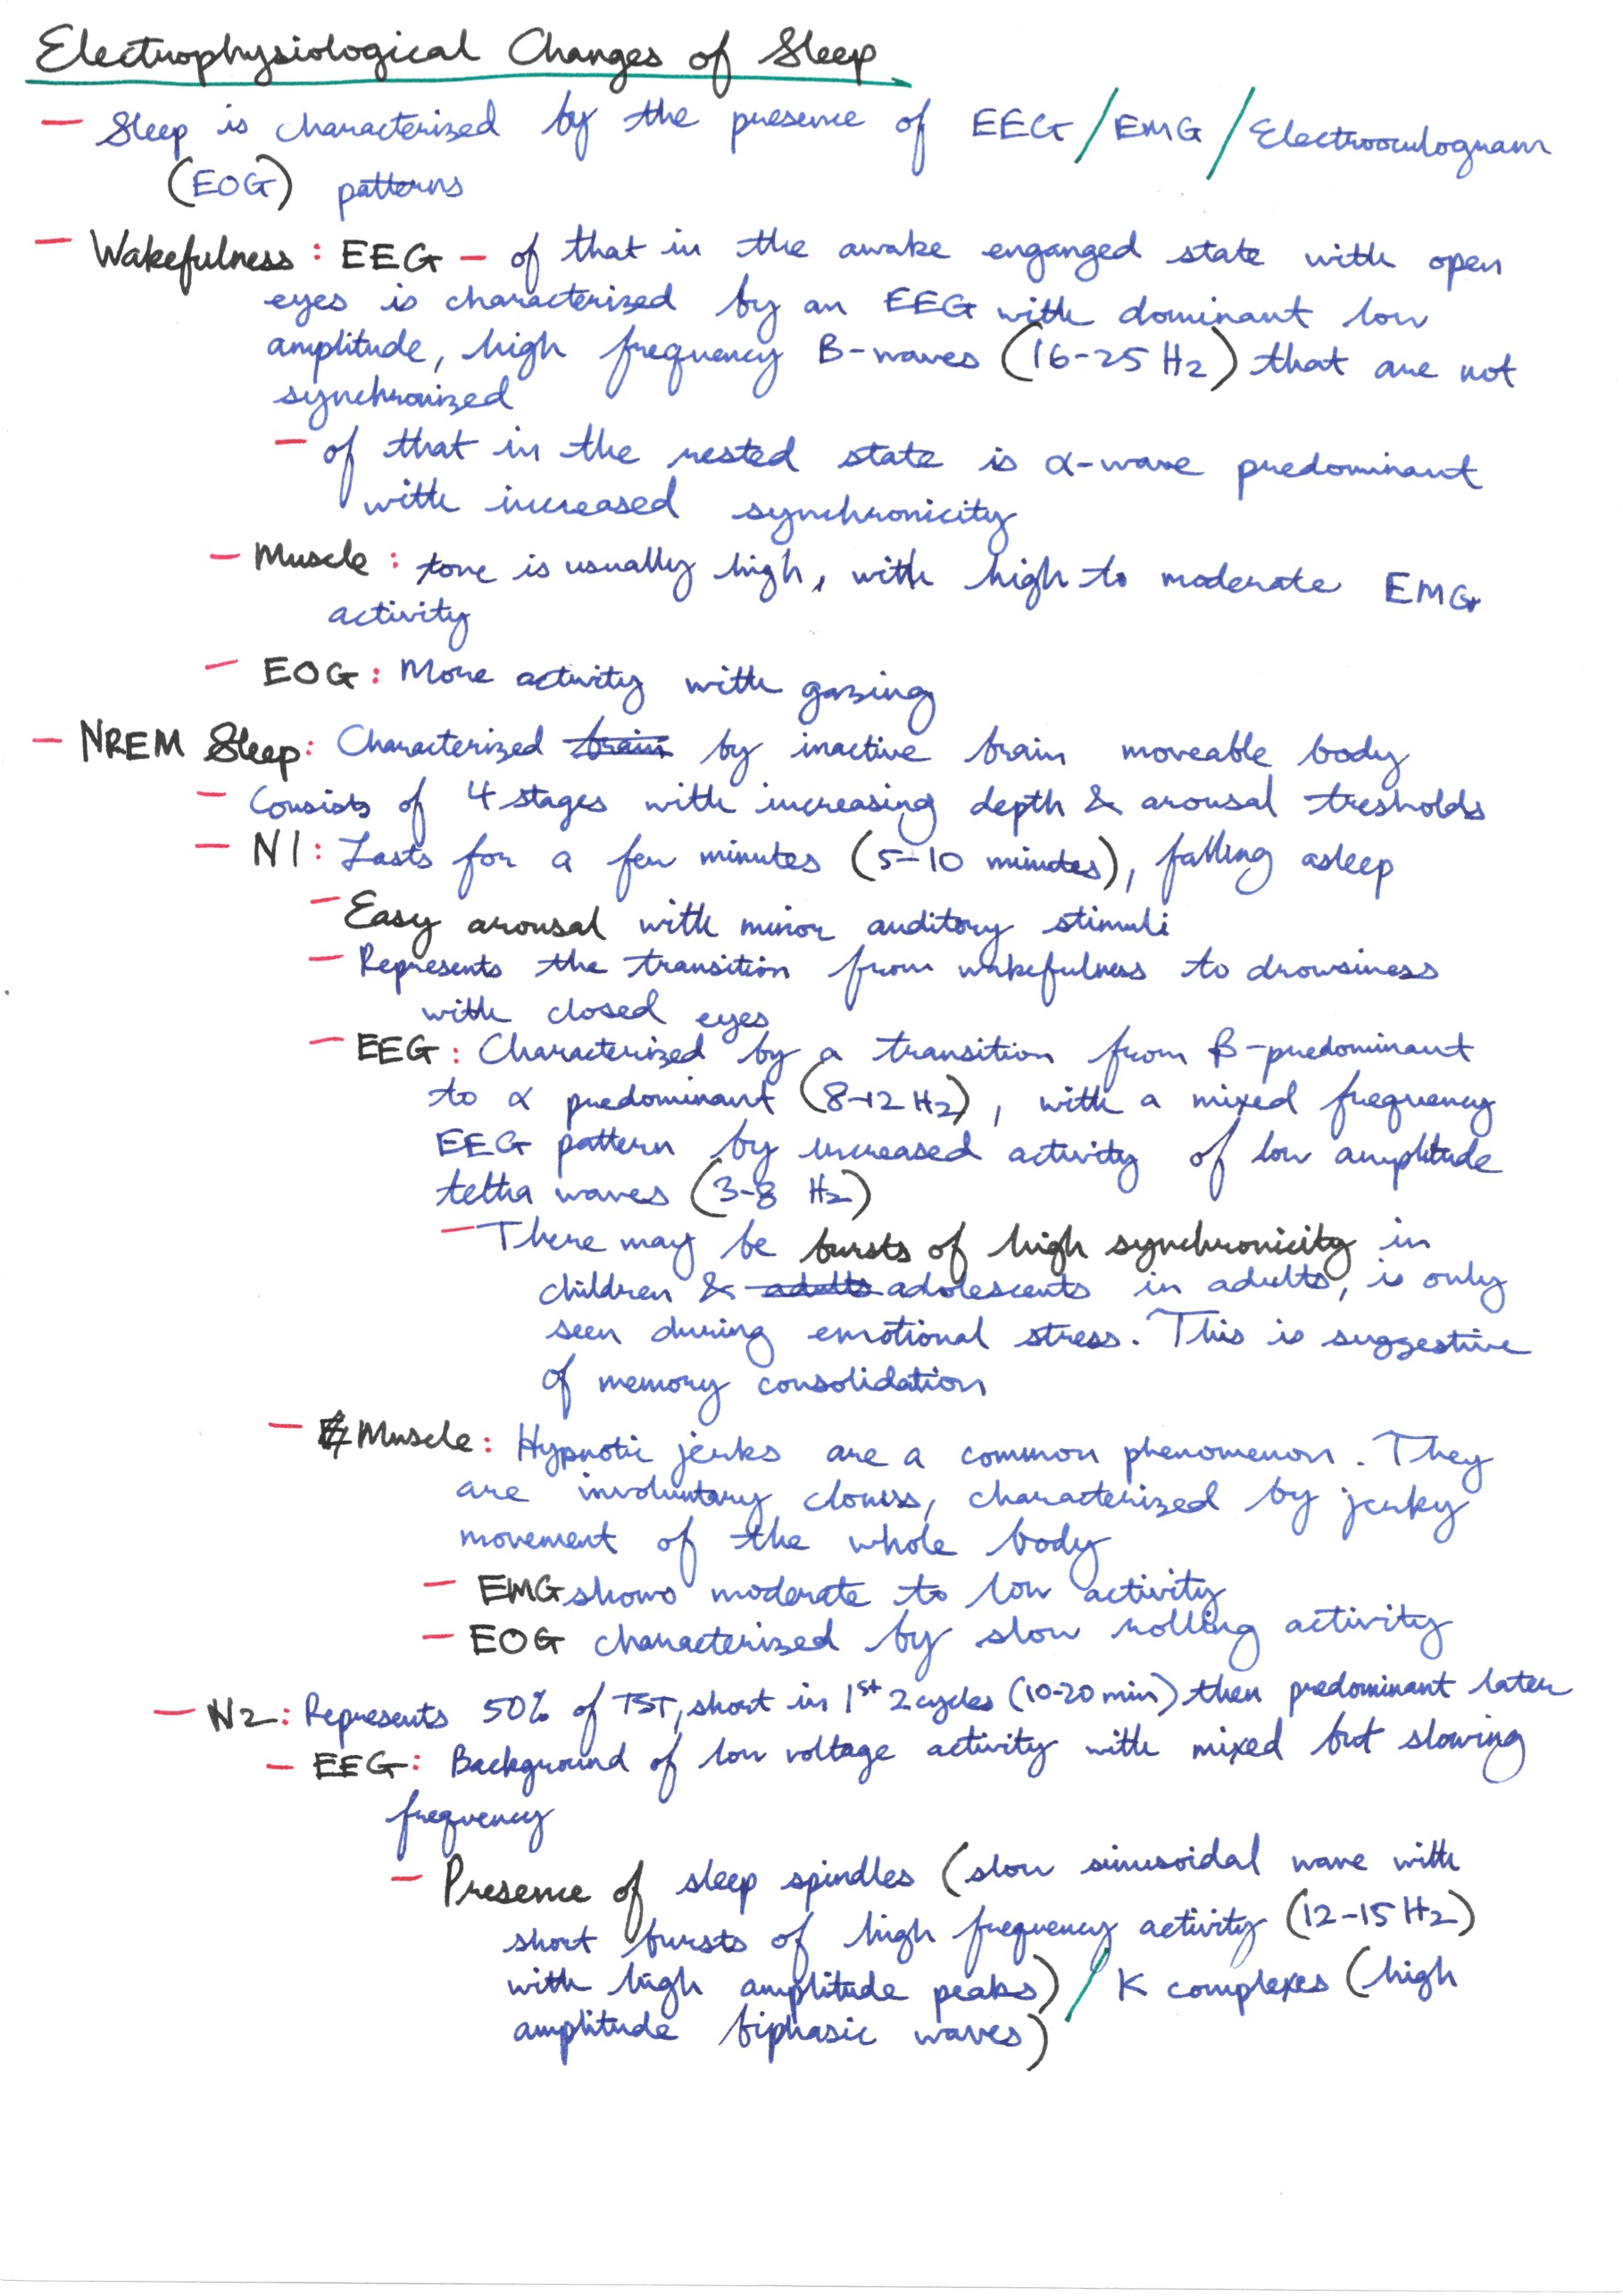 Electrophysiological Changes of Sleep
- Sleep is characterized by the presence of EEG / EMG / Electrooculogram
(EOG) patterns
- Wakefulness : EEG - of that in the awake enganged state with open
eyes is characterized by an EEG with dominant low
amplitude, high frequency B-waves (16-25 Hz) that are not
synchronized
- of that in the rested state is α-wave predominant
with increased synchronicity
- Muscle : tone is usually high, with high to moderate EMG
activity
- EOG : More activity with gazing
- NREM Sleep : Characterized brain by inactive brain moveable body
- Consists of 4 stages with increasing depth & arousal tresholds
- N1 : Lasts for a few minutes (5-10 minutes), falling asleep
- Easy arousal with minor auditory stimuli
- Represents the transition from wakefulness to drowsiness
with closed eyes
- EEG : Characterized by a transition from β-predominant
to α predominant (8-12 Hz), with a mixed frequency
EEG pattern by increased activity of low amplitude
tetha waves (3-8 Hz)
- There may be bursts of high synchronicity in
children & adults adolescents in adults, is only
seen during emotional stress. This is suggestive
of memory consolidation
- Muscle : Hypnotic jerks are a common phenomenon. They
are involuntary clonus, characterized by jerky
movement of the whole body
- EMG shows moderate to low activity
- EOG characterized by slow rolling activity
- N2 : Represents 50% of TST, short in 1st 2 cycles (10-20 min) then predominant later
- EEG : Background of low voltage activity with mixed but slowing
frequency
- Presence of sleep spindles (slow sinusoidal wave with
short bursts of high frequency activity (12-15 Hz)
with high amplitude peaks) / K complexes (high
amplitude biphasic waves)